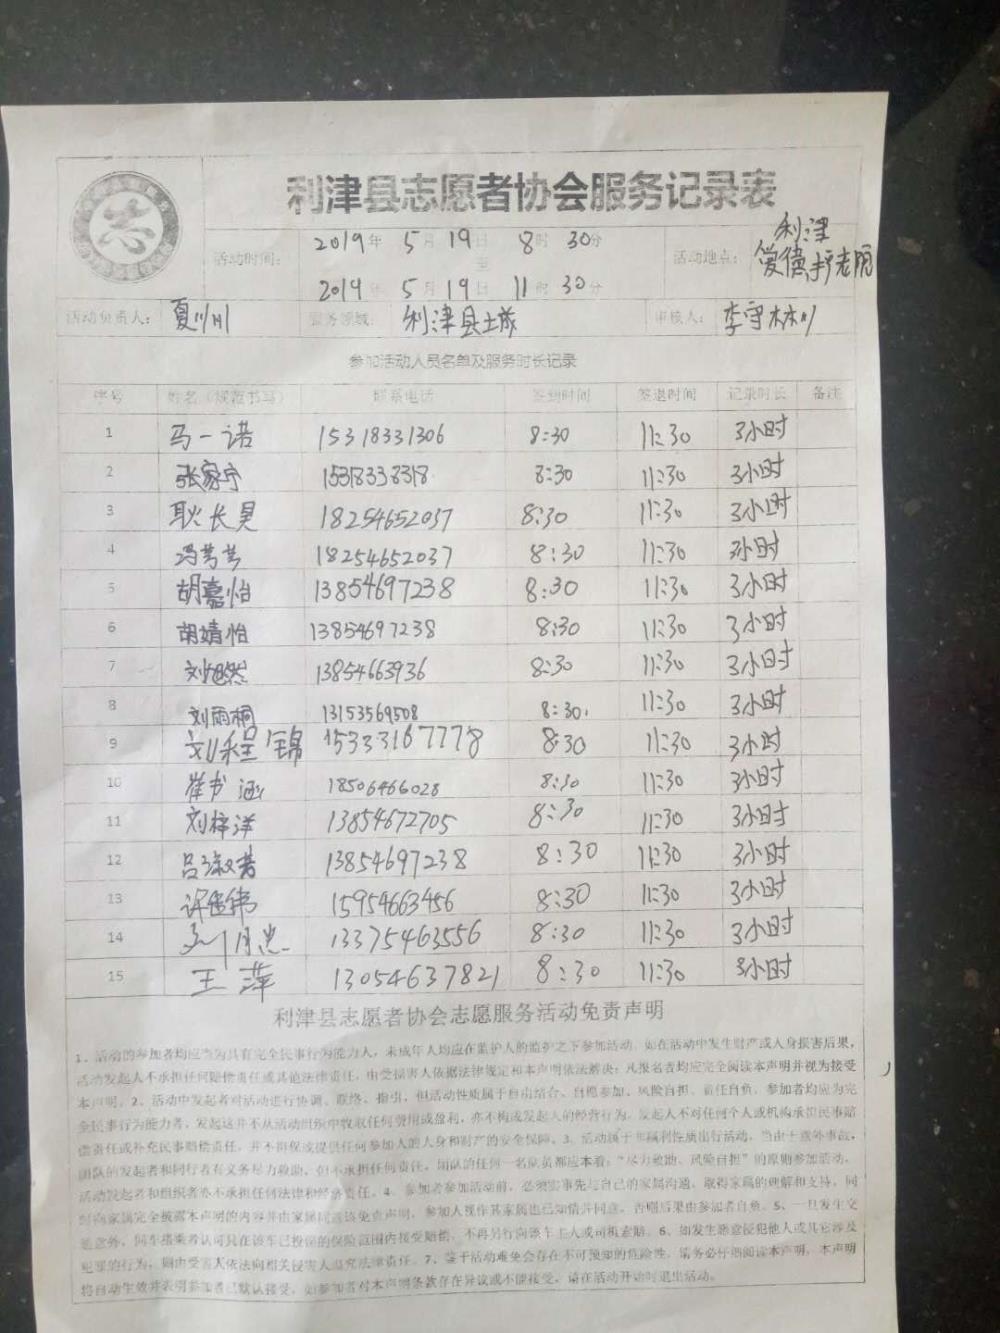 利津县志愿者协会服务记录表
活动时间： 2019年 5月 19日 8时 30分
至
2019年 5月 19日 11时 30分
活动地点： 利津
养老院
活动负责人： 夏川川 服务领域： 利津县城 审核人： 李守林
参加活动人员名单及服务时长记录
序号 姓名（规范书写） 联系电话 签到时间 签退时间 记录时长 备注
1 马一诺 15318331306 8:30 11:30 3小时
2 张家宁 15318338318 8:30 11:30 3小时
3 耿长昊 18254652037 8:30 11:30 3小时
4 冯芳芳 18254652037 8:30 11:30 3小时
5 胡嘉怡 13854697238 8:30 11:30 3小时
6 胡婧怡 13854697238 8:30 11:30 3小时
7 刘旭然 13854663936 8:30 11:30 3小时
8 刘雨桐 13153569508 8:30 11:30 3小时
9 刘程锦 15333167778 8:30 11:30 3小时
10 崔书涵 18506466028 8:30 11:30 3小时
11 刘梓洋 13854672705 8:30 11:30 3小时
12 吕淑君 13854697238 8:30 11:30 3小时
13 15954663456 8:30 11:30 3小时
14 刘月忠 13375463556 8:30 11:30 3小时
15 王萍 13054637821 8:30 11:30 3小时
利津县志愿者协会志愿服务活动免责声明
1、活动的参加者均应当为具有完全民事行为能力人，未成年人均应在监护人的监护之下参加活动。如在活动中发生财产或人身损害后果，
活动发起人不承担任何赔偿责任或其他法律责任，由受损害人依据法律规定和本声明依法解决；凡报名者均应完全阅读本声明并视为接受
本声明。2、活动中发起者对活动进行协调、联络、指引，但活动性质属于自由结合、自愿参加、风险自担、责任自负，参加者均应为完
全民事行为能力者，发起这并不从活动组织中收取任何费用或盈利，亦不构成发起人的经营行为，发起人不对任何个人或机构承担民事赔
偿责任或补充民事赔偿责任，并不担保或提供任何参加人的人身和财产的安全保障。3、活动属于非赢利性质出行活动，当由于意外事故，
团队的发起者和同行者有义务尽力救助，但不承担任何责任，团队的任何一名队员都应本着：“尽力救助、风险自担”的原则参加活动。
活动发起者和组织者亦不承担任何法律和经济责任。4、参加者参加活动前，必须实事先与自己的家属沟通，取得家属的理解和支持，同
时向家属完全披露本声明的内容并由家属同意该免责声明，参加人视作其家属也已知情并同意，否则后果由参加者自负。5、一旦发生交
通意外，同车搭乘者认可只在该车已投保的保险范围内接受赔偿，不再另行向驾车主人或司机索赔。6、如发生恶意侵犯他人或其它涉及
犯罪的行为，则由受害人依法向相关侵害人追究法律责任。7、鉴于活动难免会存在不可预知的危险性，请务必仔细阅读本声明，本声明
将自动生效并表明参加者已默认接受，如参加者对本声明条款存在异议或不能接受，请在活动开始时退出活动。